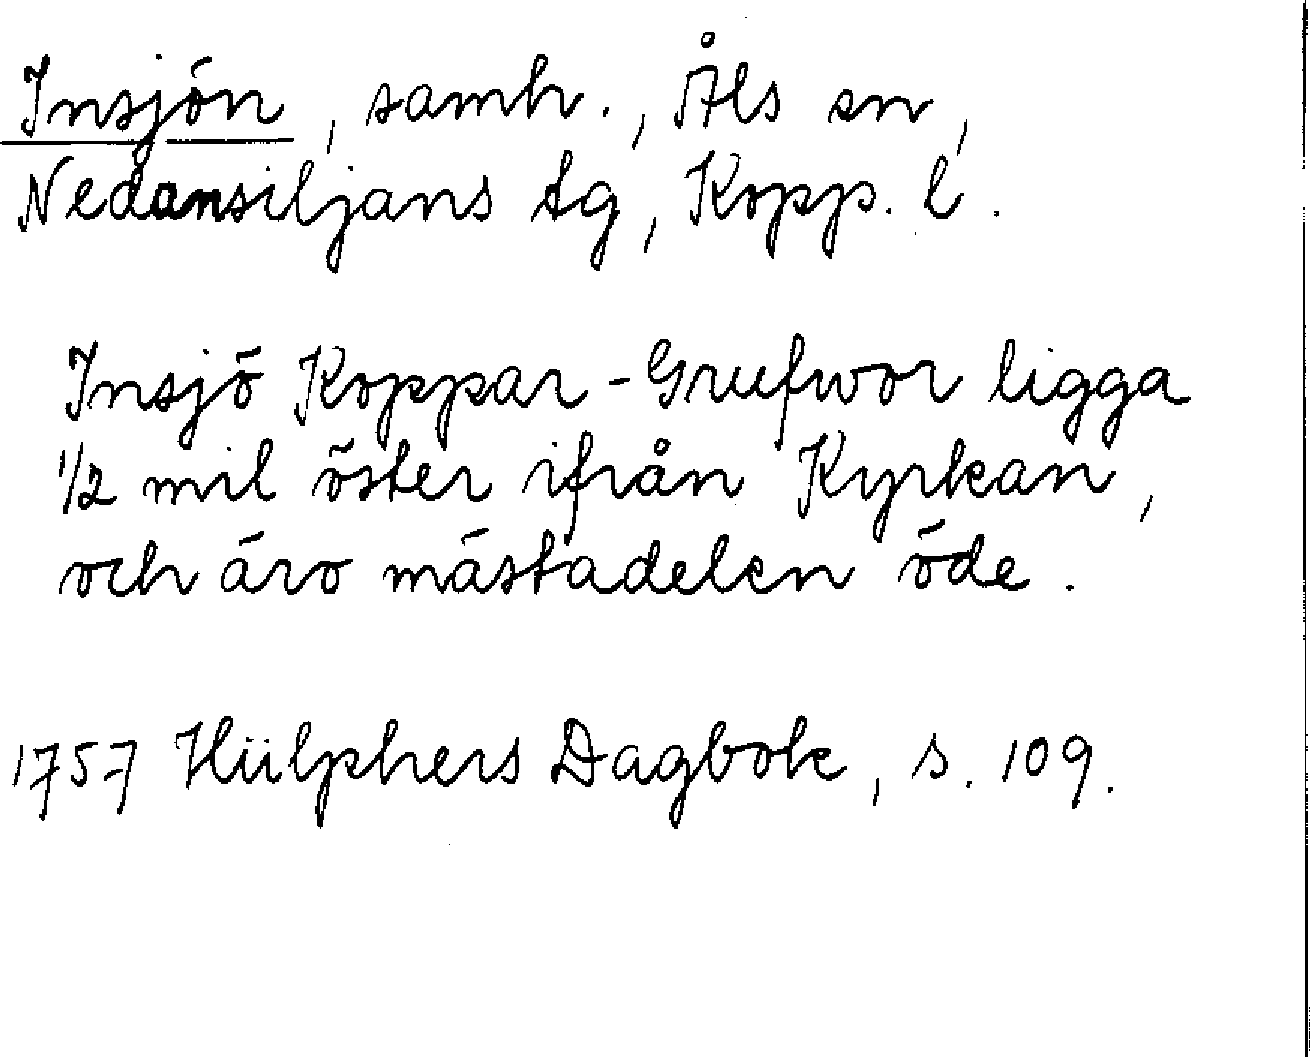 Insjön, samh., Åls sn,
Nedansiljans tg, Kopp. l.
Insjö Koppar-Grufwor ligga
1/2 mil öster ifrån Kyrkan,
och äro mästadelen öde.
1757 Hülphers Dagbok, s. 109.